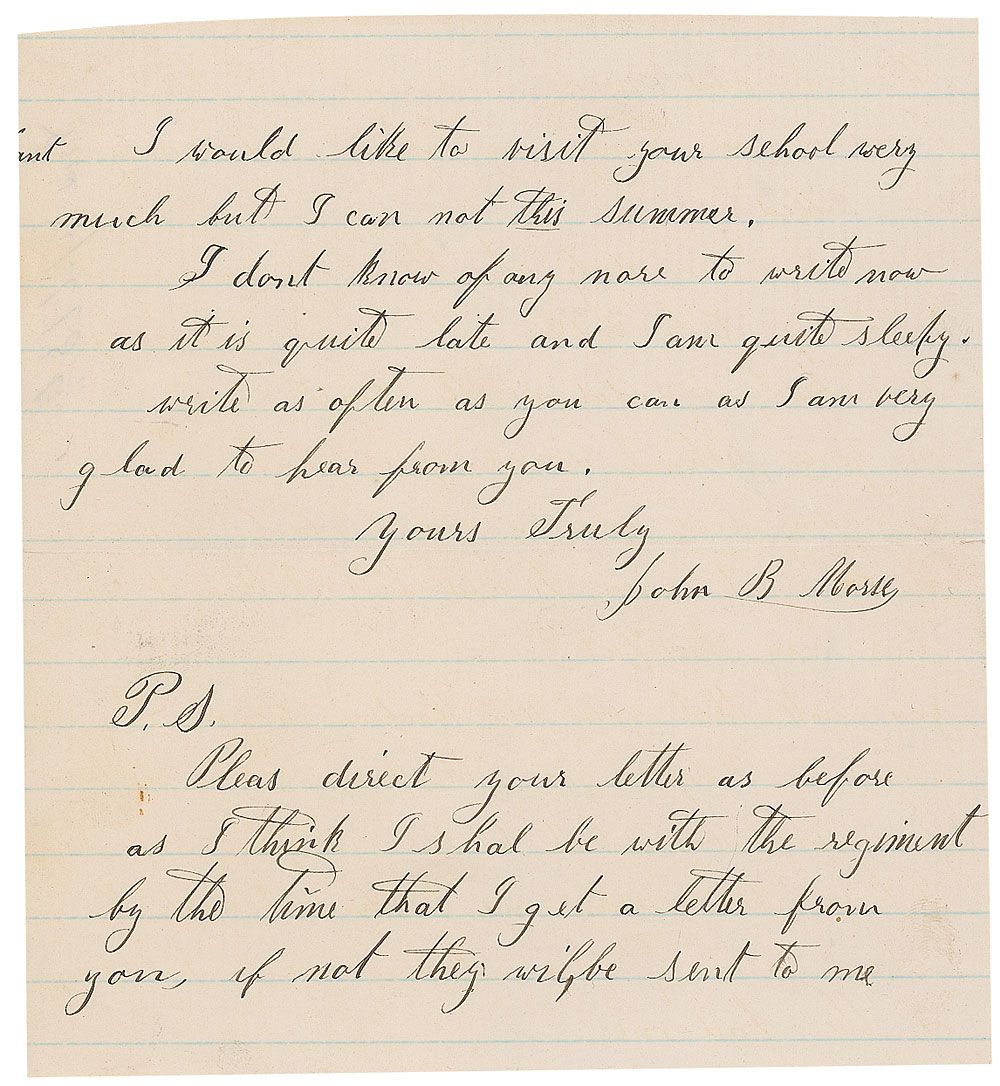 I would like to visit your school very
much but I can not this summer.
I dont know of any more to write now
as it is quite late and I am quite sleepy.
write as often as you can as I am very
glad to hear from you.
Yours Truly
John B Morse
P. S.
Pleas direct your letter as before
as I think I shal be with the regiment
by the time that I get a letter from
you, if not they will be sent to me